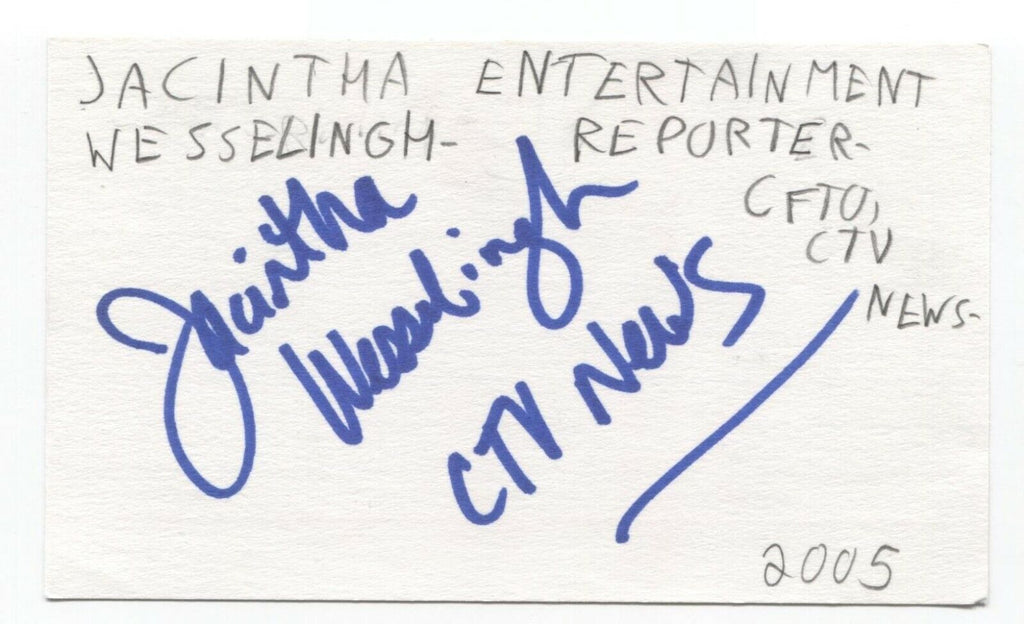 JACINTHA ENTERTAINMENT
WESSELINGH- REPORTER-
CFTO,
CTV
NEWS-
Jacintha
Wesselingh
CTV News
2005